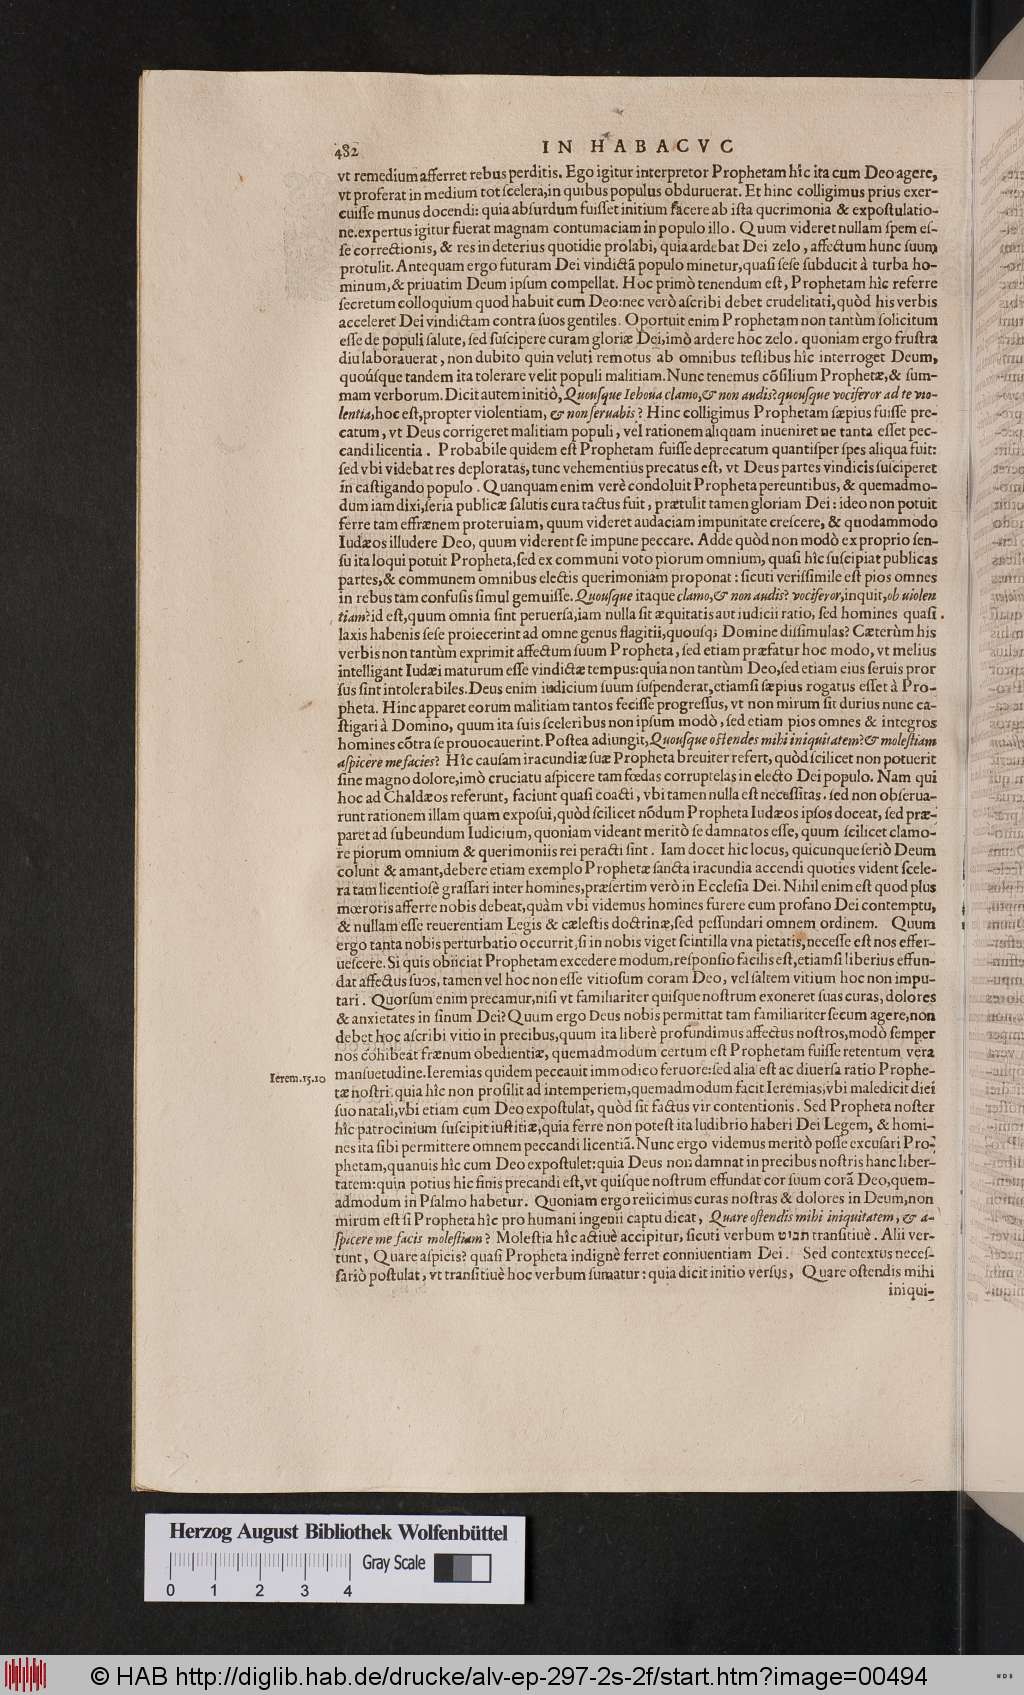 482
IN HABACVC
vt remedium afferret rebus perditis. Ego igitur interpretor Prophetam hîc ita cum Deo agere,
vt proferat in medium tot ſcelera, in quibus populus obduruerat. Et hinc colligimus prius exer-
cuiſſe munus docendi: quia abſurdum fuiſſet initium facere ab iſta querimonia & expoſtulatio-
ne. expertus igitur fuerat magnam contumaciam in populo illo. Quum videret nullam ſpem eſ-
ſe correctionis, & res in deterius quotidie prolabi, quia ardebat Dei zelo, affectum hunc ſuum
protulit. Antequam ergo futuram Dei vindictã populo minetur, quaſi ſeſe ſubducit à turba ho-
minum, & priuatim Deum ipſum compellat. Hoc primò tenendum eſt, Prophetam hîc referre
ſecretum colloquium quod habuit cum Deo: nec verò aſcribi debet crudelitati, quòd his verbis
acceleret Dei vindictam contra ſuos gentiles. Oportuit enim Prophetam non tantùm ſolicitum
eſſe de populi ſalute, ſed ſuſcipere curam gloriæ Dei, imò ardere hoc zelo. quoniam ergo fruſtra
diu laborauerat, non dubito quin veluti remotus ab omnibus teſtibus hîc interroget Deum,
quoúſque tandem ita tolerare velit populi malitiam. Nunc tenemus cõſilium Prophetæ, & ſum-
mam verborum. Dicit autem initiò, Quouſque Iehoua clamo, & non audis? quouſque vociferor ad te vio-
lentia, hoc eſt, propter violentiam, & non ſeruabis? Hinc colligimus Prophetam ſæpius fuiſſe pre-
catum, vt Deus corrigeret malitiam populi, vel rationem aliquam inueniret ne tanta eſſet pec-
candi licentia. Probabile quidem eſt Prophetam fuiſſe deprecatum quantiſper ſpes aliqua fuit:
ſed vbi videbat res deploratas, tunc vehementius precatus eſt, vt Deus partes vindicis ſuſciperet
in caſtigando populo. Quanquam enim verè condoluit Propheta pereuntibus, & quemadmo-
dum iam dixi, ſeria publicæ ſalutis cura tactus fuit, prætulit tamen gloriam Dei: ideo non potuit
ferre tam effrænem proteruiam, quum videret audaciam impunitate creſcere, & quodammodo
Iudæos illudere Deo, quum viderent ſe impune peccare. Adde quòd non modò ex proprio ſen-
ſu ita loqui potuit Propheta, ſed ex communi voto piorum omnium, quaſi hîc ſuſcipiat publicas
partes, & communem omnibus electis querimoniam proponat: ſicuti veriſſimile eſt pios omnes
in rebus tam confuſis ſimul gemuiſſe. Quouſque itaque clamo, & non audis? vociferor, inquit, ob uiolen
tiam? id eſt, quum omnia ſint peruerſa, iam nulla ſit æquitatis aut iudicii ratio, ſed homines quaſi
laxis habenis ſeſe proiecerint ad omne genus flagitii, quouſq; Domine diſſimulas? Cæterùm his
verbis non tantùm exprimit affectum ſuum Propheta, ſed etiam præfatur hoc modo, vt melius
intelligant Iudæi maturum eſſe vindictæ tempus: quia non tantùm Deo, ſed etiam eius ſeruis pror
ſus ſint intolerabiles. Deus enim iudicium ſuum ſuſpenderat, etiamſi ſæpius rogatus eſſet à Pro-
pheta. Hinc apparet eorum malitiam tantos feciſſe progreſſus, vt non mirum ſit durius nunc ca-
ſtigari à Domino, quum ita ſuis ſceleribus non ipſum modò, ſed etiam pios omnes & integros
homines cõtra ſe prouocauerint. Poſtea adiungit, Quouſque oſtendes mihi iniquitatem? & moleſtiam
aſpicere me facies? Hîc cauſam iracundiæ ſuæ Propheta breuiter refert, quòd ſcilicet non potuerit
ſine magno dolore, imò cruciatu aſpicere tam fœdas corruptelas in electo Dei populo. Nam qui
hoc ad Chaldæos referunt, faciunt quaſi coacti, vbi tamen nulla eſt neceſſitas. ſed non obſerua-
runt rationem illam quam expoſui, quòd ſcilicet nõdum Propheta Iudæos ipſos doceat, ſed præ-
paret ad ſubeundum Iudicium, quoniam videant meritò ſe damnatos eſſe, quum ſcilicet clamo-
re piorum omnium & querimoniis rei peracti ſint. Iam docet hic locus, quicunque ſeriò Deum
colunt & amant, debere etiam exemplo Prophetæ ſancta iracundia accendi quoties vident ſcele-
ra tam licentioſè graſſari inter homines, præſertim verò in Eccleſia Dei. Nihil enim eſt quod plus
mœroris afferre nobis debeat, quàm vbi videmus homines furere cum profano Dei contemptu,
& nullam eſſe reuerentiam Legis & cæleſtis doctrinæ, ſed peſſundari omnem ordinem. Quum
ergo tanta nobis perturbatio occurrit, ſi in nobis viget ſcintilla vna pietatis, neceſſe eſt nos effer-
ueſcere. Si quis obiiciat Prophetam excedere modum, reſponſio facilis eſt, etiamſi liberius effun-
dat affectus ſuos, tamen vel hoc non eſſe vitioſum coram Deo, vel ſaltem vitium hoc non impu-
tari. Quorſum enim precamur, niſi vt familiariter quiſque noſtrum exoneret ſuas curas, dolores
& anxietates in ſinum Dei? Quum ergo Deus nobis permittat tam familiariter ſecum agere, non
debet hoc aſcribi vitio in precibus, quum ita liberè profundimus affectus noſtros, modò ſemper
nos cohibeat frænum obedientiæ, quemadmodum certum eſt Prophetam fuiſſe retentum vera
Ierem. 15.10
manſuetudine. Ieremias quidem peccauit immodico feruore: ſed alia eſt ac diuerſa ratio Prophe-
tæ noſtri: quia hîc non proſilit ad intemperiem, quemadmodum facit Ieremias, vbi maledicit diei
ſuo natali, vbi etiam cum Deo expoſtulat, quòd ſit factus vir contentionis. Sed Propheta noſter
hîc patrocinium ſuſcipit iuſtitiæ, quia ferre non poteſt ita ludibrio haberi Dei Legem, & homi-
nes ita ſibi permittere omnem peccandi licentiã. Nunc ergo videmus meritò poſſe excuſari Pro-
phetam, quanuis hîc cum Deo expoſtulet: quia Deus non damnat in precibus noſtris hanc liber-
tatem: quin potius hic finis precandi eſt, vt quiſque noſtrum effundat cor ſuum corã Deo, quem-
admodum in Pſalmo habetur. Quoniam ergo reiicimus curas noſtras & dolores in Deum, non
mirum eſt ſi Propheta hîc pro humani ingenii captu dicat, Quare oſtendis mihi iniquitatem, & a-
ſpicere me facis moleſtiam? Moleſtia hîc actiuè accipitur, ſicuti verbum תביט tranſitiuè. Alii ver-
tunt, Quare aſpicis? quaſi Propheta indignè ferret conniuentiam Dei. Sed contextus neceſ-
ſariò poſtulat, vt tranſitiuè hoc verbum ſumatur: quia dicit initio verſus, Quare oſtendis mihi
iniqui-
Herzog August Bibliothek Wolfenbüttel
Gray Scale
0 1 2 3 4
© HAB http://diglib.hab.de/drucke/alv-ep-297-2s-2f/start.htm?image=00494